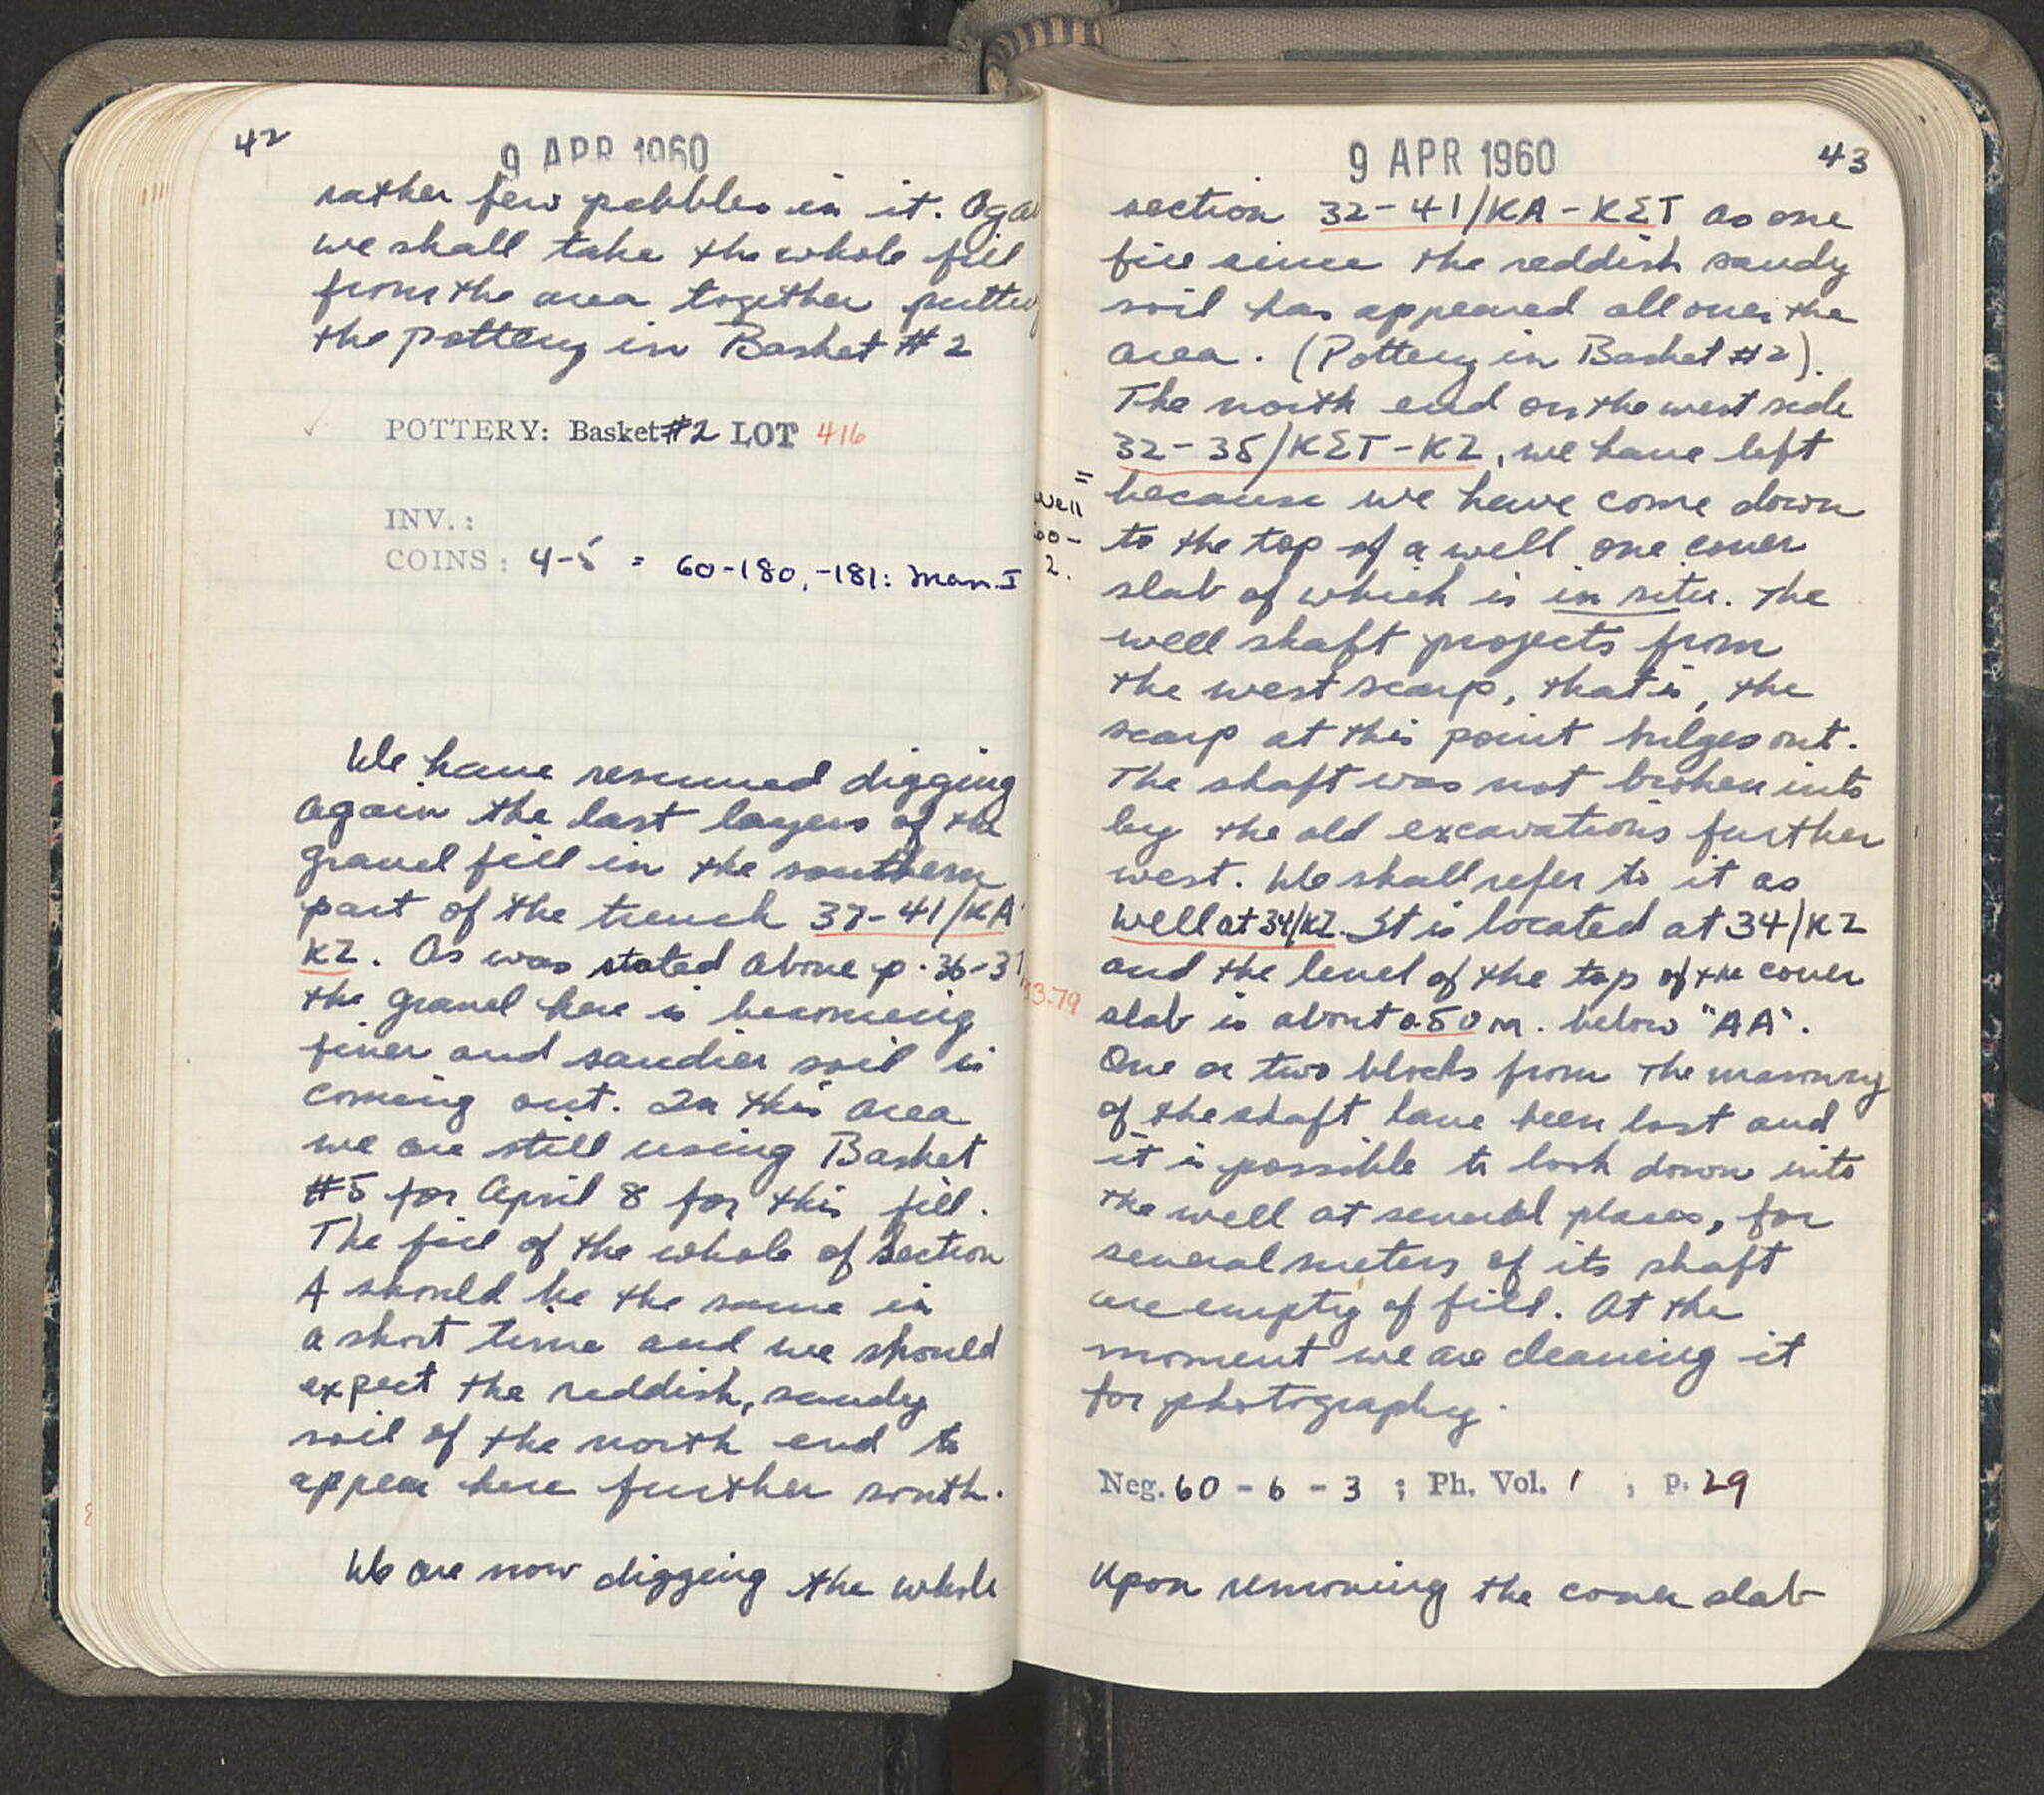 42
9 APR 1960
rather few pebbles in it. Aga
we shall take the whole fill
from the area together putting
the pottery in Basket #2
POTTERY: Basket #2 LOT 416
INV.:
COINS: 4-5 = 60-180, -181: Man. I
We have resumed digging
again the last layers of the
gravel fill in the southern
part of the trench 37-41/KA
KZ. As was stated above p. 36-37
the gravel here is becoming
finer and sandier soil is
coming out. In this area
we are still using Basket
#5 for April 8 for this fill.
The fill of the whole of section
A should be the same in
a short time and we should
expect the reddish, sandy
soil of the north end to
appear here further south.
We are now digging the whole
9 APR 1960
43
section 32-41/KA-KΣT as one
fill since the reddish sandy
soil has appeared all over the
area. (Pottery in Basket #2).
The north end on the west side
32-35/KΣT-KZ, we have left
because we have come down
to the top of a well one cover
slab of which is in situ. The
well shaft projects from
the west scarp, that is, the
scarp at this point bulges out.
The shaft was not broken into
by the old excavations further
west. We shall refer to it as
Well at 34/KZ. It is located at 34/KZ
and the level of the top of the cover
slab is about 0.50 m. below "AA".
One or two blocks from the masonry
of the shaft have been lost and
it is possible to look down into
the well at several places, for
several meters of its shaft
are empty of fill. At the
moment we are cleaning it
for photography.
Neg. 60-6-3; Ph. Vol. 1, p. 29
Upon removing the cover slab
=
well
60-
2.
33.79